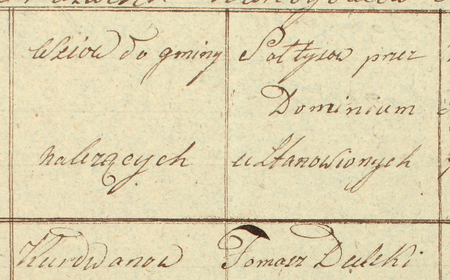 Wsiow do gminy
należących
Sołtysow przez
Dominium
ustanowionych
Kurdwanow
Tomasz Dulski